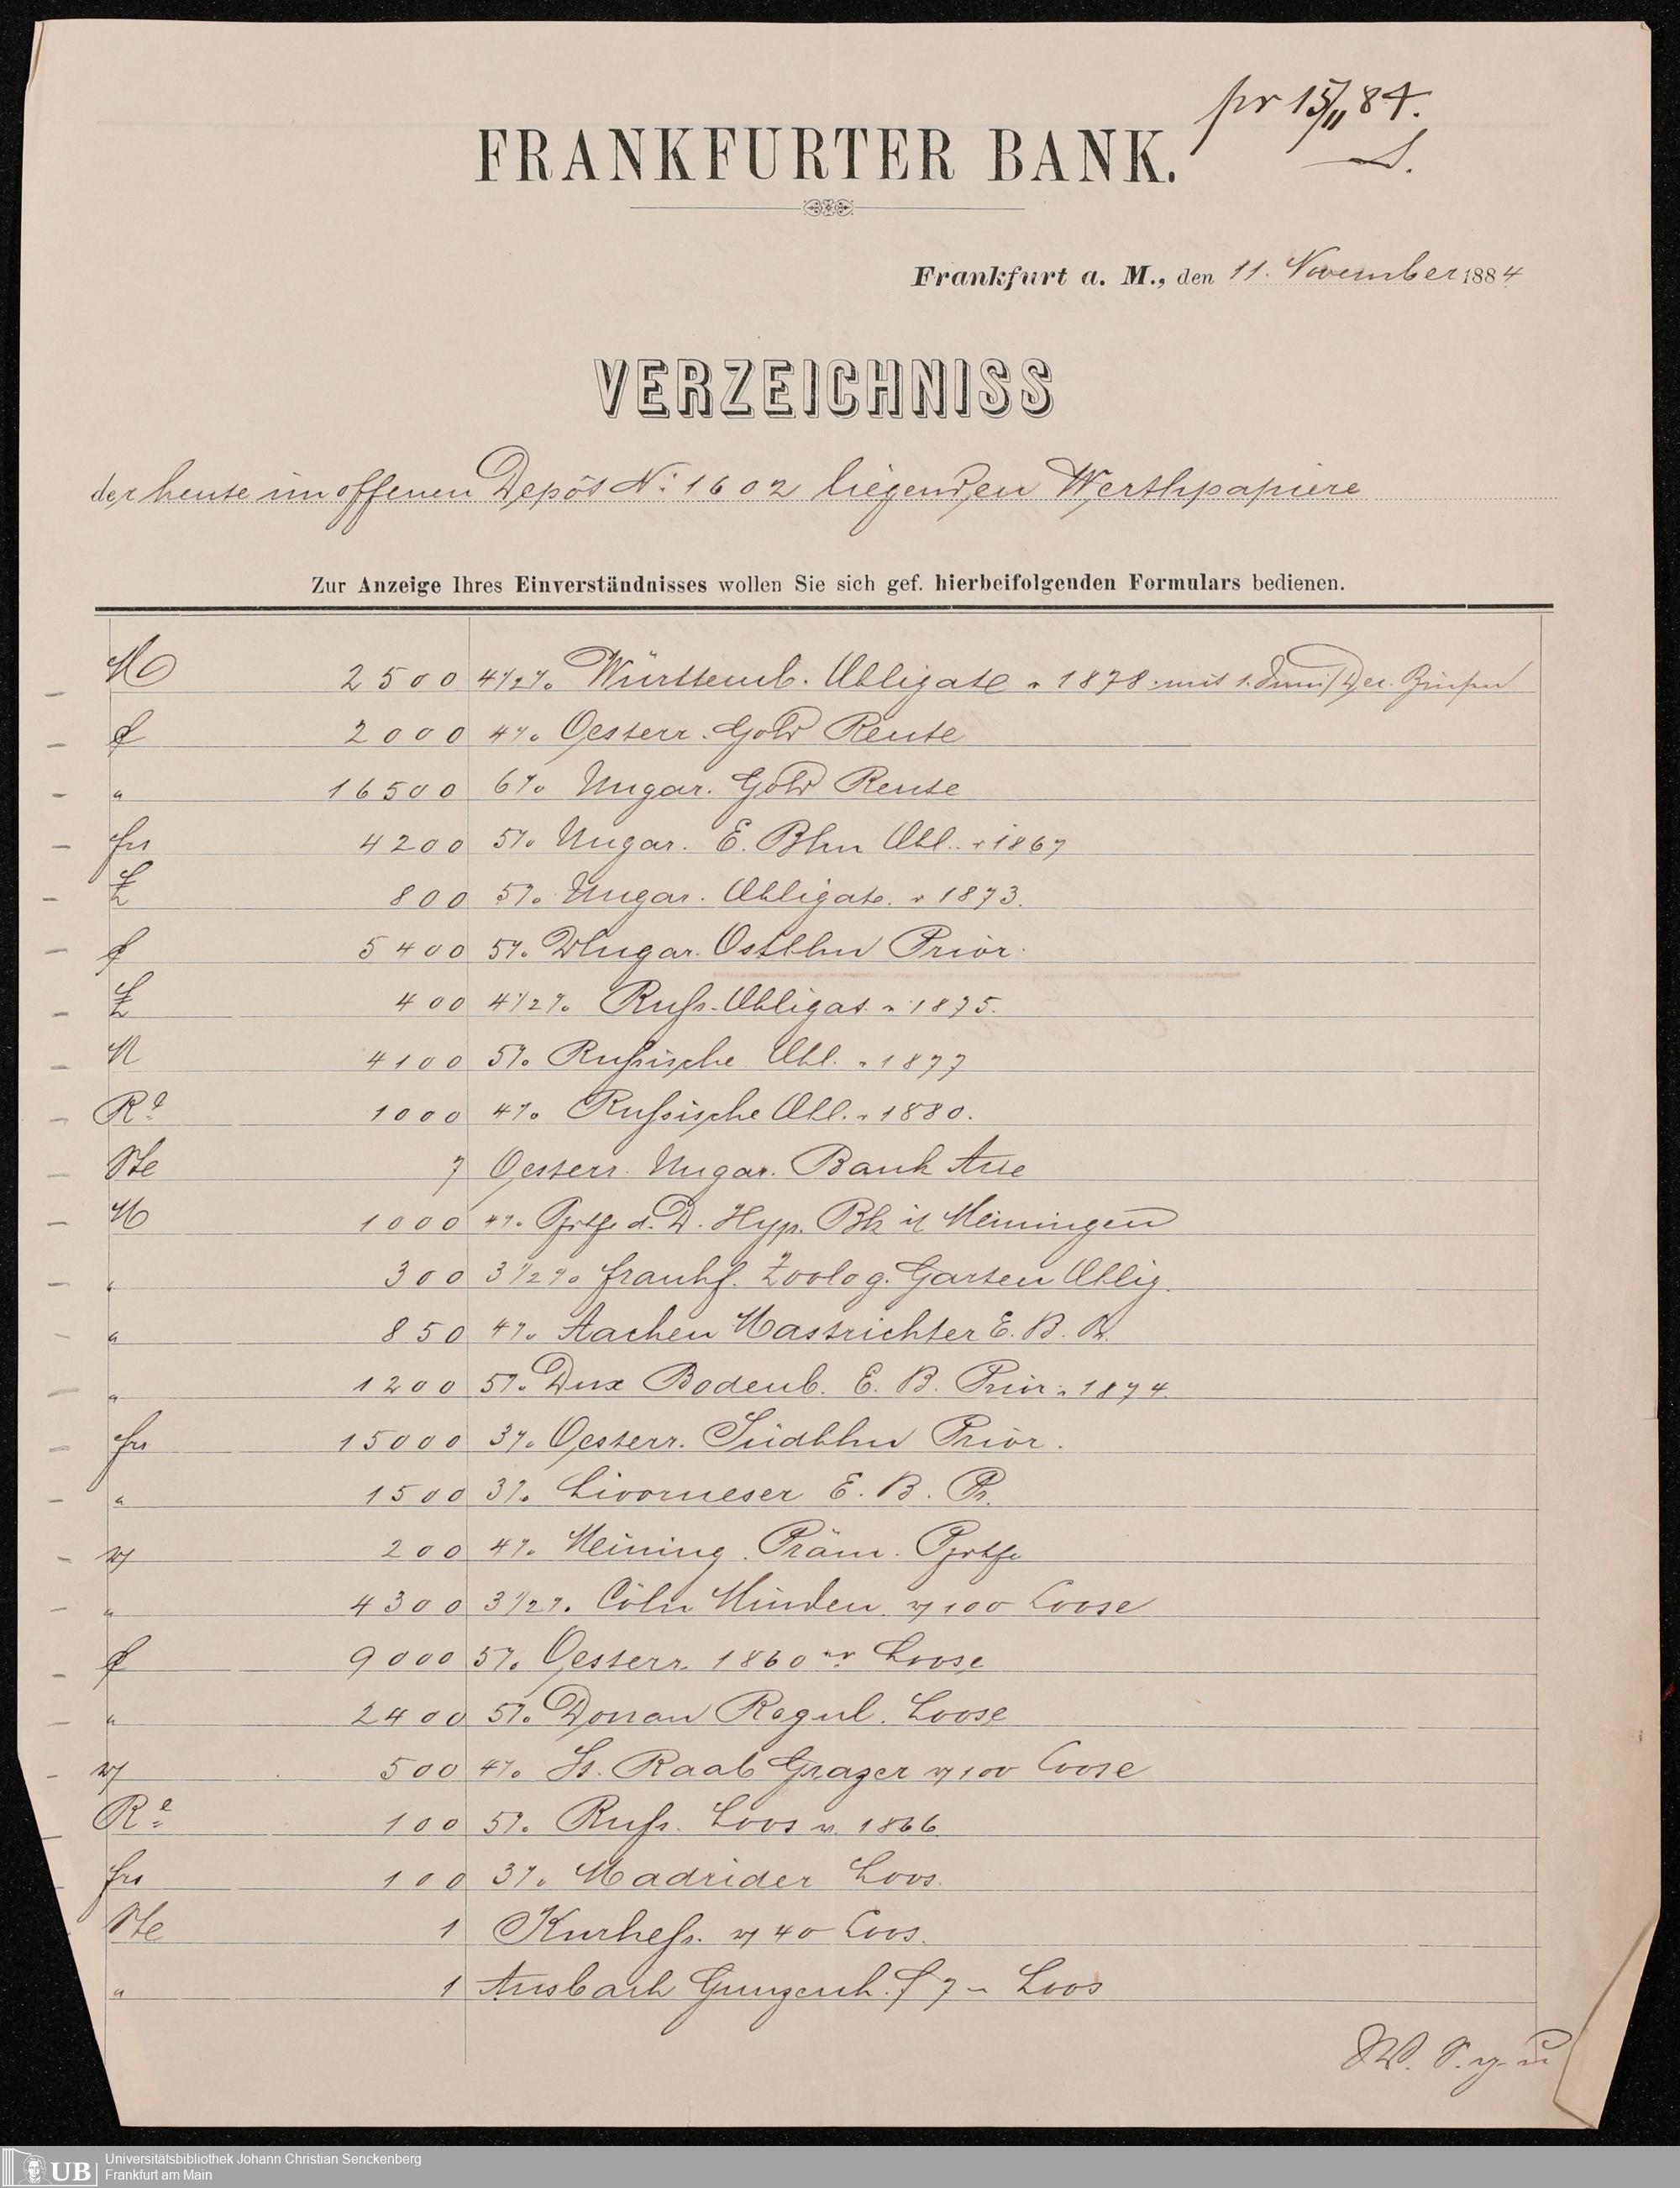 pr 15/11 84.
S.
FRANKFURTER BANK.
Frankfurt a. M., den 11. November 1884
VERZEICHNISS
der heute im offenen Depôt No 1602 liegenden Werthpapiere
Zur Anzeige Ihres Einverständnisses wollen Sie sich gef. hierbeifolgenden Formulars bedienen.
M 2500 4 1/2 % Württemb. Obligate v 1878 mit 1. Juni/Dec. Zinsen
fl 2000 4 % Oesterr. Gold Rente
" 16500 6 % Ungar. Gold Rente
frs 4200 5 % Ungar. E. Bhn Obl. v 1867
£ 800 5 % Ungar. Obligat. v 1873.
fl 5400 5 % Ungar. Ostbhn Prior.
£ 400 4 1/2 % Russ. Obligat. v 1875.
M 4100 5 % Russische Obl. v 1877
Ro 1000 4 % Russische Obl. v 1880.
Ste 7 Oesterr. Ungar. Bank Act
M 1000 4 % Pfdbfe d. D. Hyp. Bk in Meiningen
" 300 3 1/2 % Frankf. Zoolog. Garten Oblig.
" 850 4 % Aachen Mastrichter E. B. Pr.
" 1200 5 % Dux Bodenb. E. B. Prior. v 1874.
frs 15000 3 % Oesterr. Südbhn Prior.
" 1500 3 % Livorneser E. B. Pr.
200 4 % Meining. Präm. Pfdbfe
" 4300 3 1/2 % Cöln Minden 100 Loose
fl 9000 5 % Oesterr. 1860er Loose
" 2400 5 % Donau Regul. Loose
500 4 % St. Raab Grazer 100 Loose
Ro 100 5 % Russ. Loos v. 1866.
frs 100 3 % Madrider Loos.
Ste 1 Kurhess. 40 Loos.
" 1 Ansbach Gunzenh. f 7 - Loos
UB
Universitätsbibliothek Johann Christian Senckenberg
Frankfurt am Main